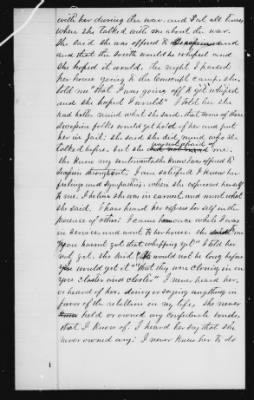 with her during the war. and at all times
when she talked with me about the war.
She said she was opposed to Secession and
and that the South would be whiped and
she hoped it would, the night I passed
her house going to the conscript camp, she
told me "that I was going off to get whiped
and she hoped I would" I told her she
had better mind what she said, that some of those
Secession folks would get hold of her and put
her in jail: she said she didn mind, as she
talked before, but she was not afraid of me.
She knew my sentiments she knew I was opposed to
Secession throughout; I am satisfied I knew her
feelings and sympathies: when she expressed herself
to me, I believe she was in earnest, and meant what
she said. I have heard her express herself in the
presence of others: I came home once while I was
in Service and went to her house. she said to me
you havent got that whipping yet" I told her
not yet. she said "it would not be long before
you would get it" "that they were closing in on
you closter and closter" I never heard her,
or heard of her, doing or saying anything in
favor of the rebellion in my life, she never
held or owned any Confederate bonds,
that I know of. I heard her say that she
never owned any: I never knew her to do